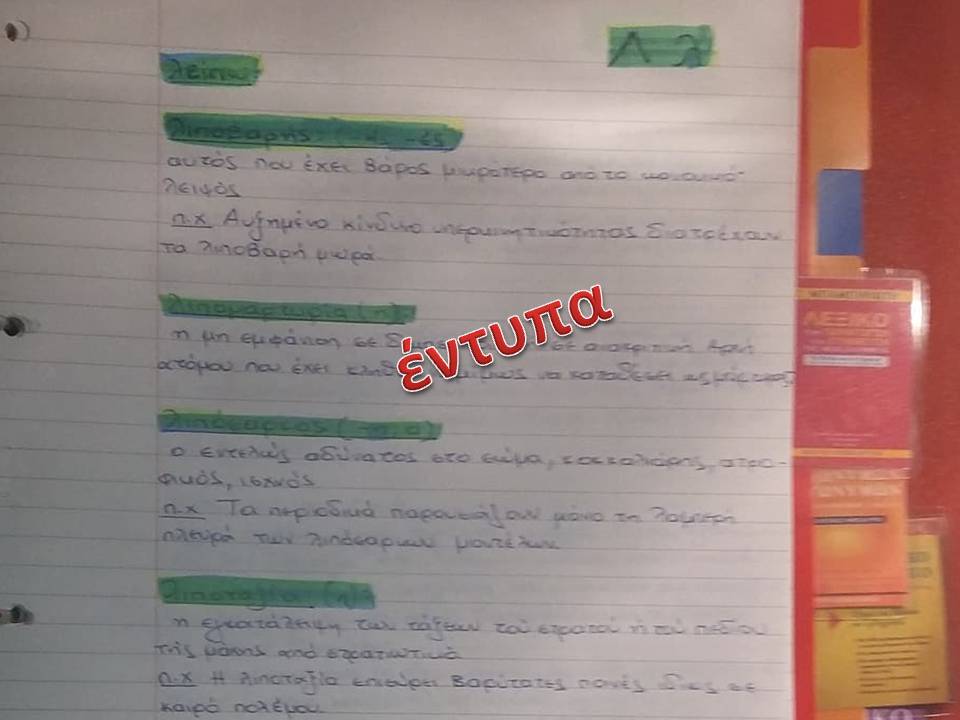 Λ λ
λείπω
λιποβαρής (-ής, -ές)
αυτός που έχει βάρος μικρότερο από το κανονικό
λειψός
π.χ Αυξημένο κίνδυνο υπερκινητικότητας διατρέχουν
τα λιποβαρή μωρά.
λιπομαρτυρία (η)
έντυπα
η μη εμφάνιση σε σε ανακριτική αρχή
ατόμου που έχει να καταθέσει ως μάρτυρας
λιπόσαρκος (-η, -ο)
ο εντελώς αδύνατος στο σώμα, κοκαλιάρης, ατρο-
φικός, ισχνός
π.χ Τα περιοδικά παρουσιάζουν μόνο τη λαμπερή
πλευρά των λιπόσαρκων μοντέλων
λιποταξία (η)
η εγκατάλειψη των τάξεων τού στρατού ή τού πεδίου
τής μάχης από στρατιωτικό
π.χ Η λιποταξία επισύρει βαρύτατες ποινές ιδίως σε
καιρό πολέμου.
ΛΕΞΙΚΟ